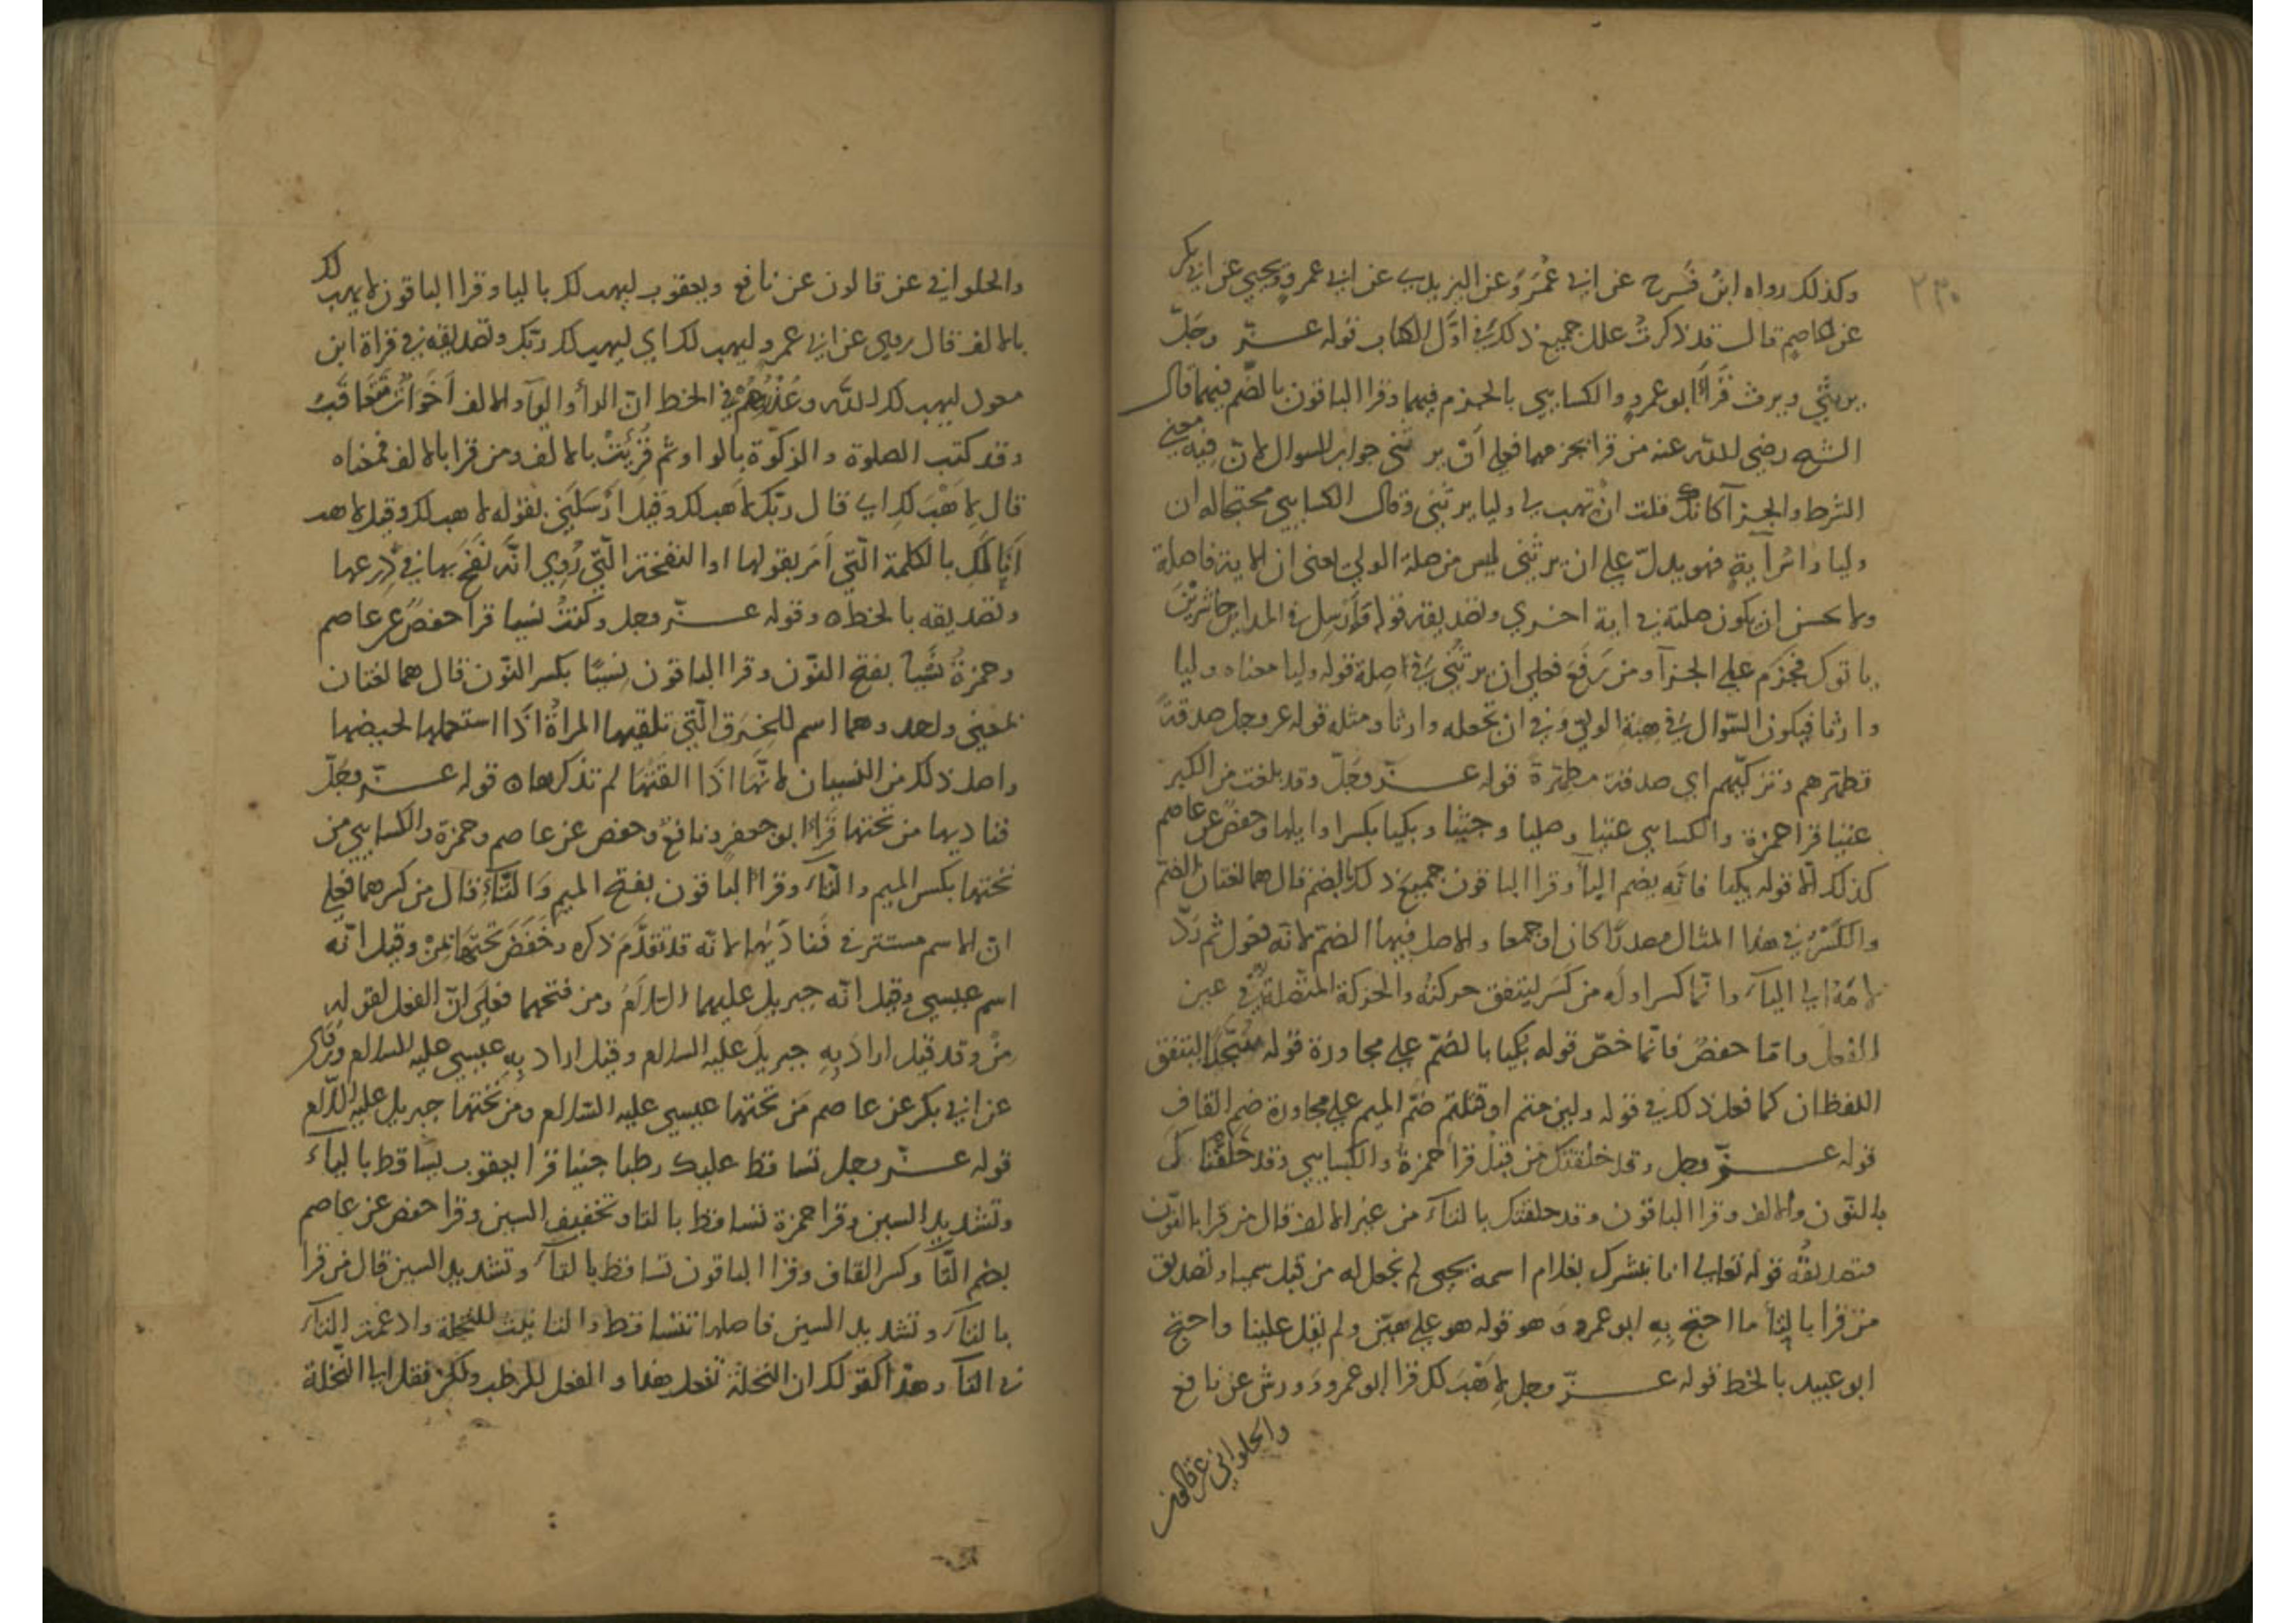 ٢٣٠
وكذلك رواه ابن فَرح عن ابي عُمَرَ وعن اليزيدي عن ابي عمرو ويحيى عن ابي بكر
عن عاصم قال قد ذكرتُ علل جميع ذلك في اوّل الكتاب قوله عزّ وجلّ
يرثني ويرث قَرأ ابو عمرو والكسايي بالجزم فيهما وقرا الباقون بالضّم فيهما قال
الشيخ رضي الله عنه من قرا بجزمهما فعلى أنّ يرثني جواب السوال لان فيه معنى
الشرط والجزآ كانك قلت ان تهب لي وليا يرثني وقال الكسايي محتجا له ان
وليا راس آية فهو يدلّ على ان يرثني ليس من صلة الولي يعني ان الاية فاصلة
ولا يحسن ان يكون صلته في اية اخري وتصديقه قوله فَأرْسِل في المداين حاشرين
ياتوك فجزم على الجزآ ومن رَفَعَ فعلى ان يرثُني في صلة قوله وليا معناه وليا
وارثا فيكون السّوال في هِبَةِ الولي وفي ان تجعله وارثا ومثله قوله عز وجل صدقةً
تطهّرهم وتزكيّهم اي صدقة مطهّرة قوله عزّ وجَلّ وقد بلغت من الكبر
عتيا قرا حمزة والكسايي عتيا وصليا وجثيا وبكيا بكسر اوايلها وحفص عن عاصم
كذلك الّا قوله بكيا فانّه بضم البأ وقرا الباقون جميعَ ذلك بالضم قال هما لغتان الضّم
والكَسْرُ في هذا المثال مصدرًا كان او جمعا والاصل فيهما الضّم لانّه فعول ثم رَدّ
لامَهُ الى اليآء وانّما كسر اوله من كَسَر ليتفق حركتُه والحركة المتّصلة في عين
الفعل وامّا حفصٌ فانّما خصّ قوله بُكيا بالضّم على مجاورة قوله سُجّدًا ليتفق
اللفظان كما فعل ذلك في قوله ولين متم او قتلتم ضمّ الميم على مجاورة ضم القافِ
قوله عزّ وجل وقد خلقتك من قبل قرأ حمزةُ والكسايي وقد خلقْناك
بالنّون والالف وقرا الباقون وقد خلقتك بالتآء من غير الالف قال من قرا بالنّون
فتصديقُه قوله تعالى انا نبشرك بغلام اسمه يحيى لم نجعل له من قبل سميا وتصديق
من قرا بالتأ ما احتج بِهِ ابو عمرو وَهو قوله هو علي هيّن ولم يقل علينا واحتج
ابو عبيد بالخط قوله عزّ وجل لِاَهَبَ لك قرا ابو عمرو وَورش عن نافع
والحلواني عن قالون
والحلواني عن قالون عن نافع ويعقوب ليهب لك باليا وقرا الباقون لاهب لك
بالالف قال روي عن ابي عمرو ليهب لك اي ليهب لك ربّك وتصديقه في قراة ابن
ليهب لك الله وعُذْرُهُمْ في الخط انّ الوأو واليآء والالف اَخَوَاتٌ تَتَعَاقَبُ
وقد كتب الصلوة والزكوة بالواو ثم قُرِئَتْ بالالف ومن قرا بالالف فمعناه
قال لِاَهَبَ لكِ اي قال ربّكِ لاهب لك وقيل ارْسَلَني بقوله لاهب لك وقيل لاهب
اَنَا لَكِ بالكلمة الّتي اَمَر بقولها او النفخة الّتي رُوِيَ انّه نَفَخَ بها في دِرعها
وتصديقه بالخط ٥ وقوله عزّ وجل وكنتُ نسيا قرا حفصٌ عن عاصم
وحمزةُ نَسْياً بفتح النّون وقرا الباقون نِسْيًا بكسر النّون قال هما لغتان
بمعنى واحد وهما اسم للخِرَقِ الّتي تلقيها المراةُ اذا استعملها لحيضها
واصل ذلك من النسيان لانّها اذا القتها لم تذكرها ٥ قوله عزّ وجَلّ
فناديها من تحتها قَرأ ابو جعفر ونافعٌ وحفص عن عاصم وحمزة والكسايي مِن
تحتها بكسر الميم والتّاء وقرا الباقون بفتح الميم وَالتّآءِ قال من كسرهما فعلى
انّ الاسم مستتر في فَنادَيها لانّه قد تقدَّمَ ذكره وخَفَضَ تحتها بمِنْ وقيل انّه
اسم عيسى وقيل انّه جبريل عليهما السّلامُ ومن فتحهما فعلَى انّ الفعل لقوله
مَنْ وقد قيل اراد بِهِ جبريلَ عليه السلام وقيل اراد بِهِ عيسى عليه السلام وَرُوِي
عن ابي بكر عن عاصم مَن تحتها عيسى عليه السّلام ومِن تحتها جبريل عليه السّلام
قوله عزّ وجل تساقط عليك رطبا جنيا قرا يعقوب يسّاقط بالياء
وتشديد السين وقرا حمزة تساقط بالتا وتخفيف السين وقرا حفص عن عاصم
بضم التّا وكسر القاف وقرا الباقون تساقط بالتآء وتشديد السين قال من قرا
بالتآء وتشديد السين فاصلها تتساقط والتانيث للنخلة وادغمت التآء
في التآء وهذا كقولك ان النخلة تفعل هذا والفعل للرطب ولكن نقل الى النّخلة